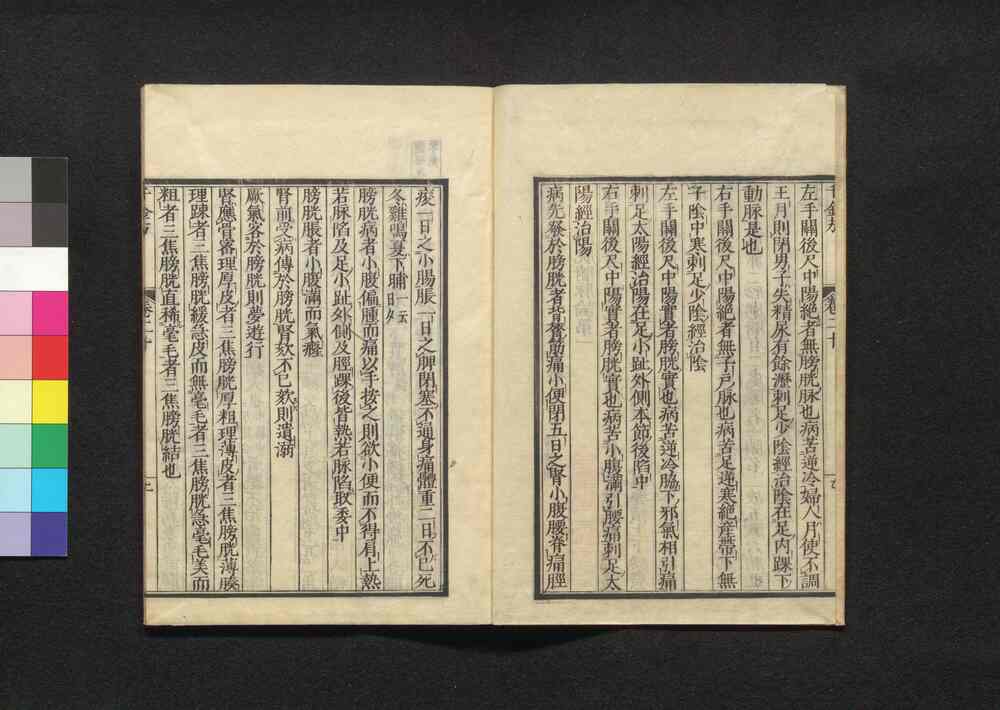 左手關後尺中陽絕者無膀胱脉也病苦逆冷婦人月使不調
王月則閉男子失精尿有餘瀝刺足少陰經治陰在足內踝下
動脉是也
右手關後尺中陽絕者無子戸脉也病苦足逆寒絕產帶下無
子陰中寒刺足少陰經治陰
左手關後尺中陽實者膀胱實也病苦逆冷脇下邪氣相引痛
刺足太陽經治陽在足小趾外側本節後陷中
右手關後尺中陽實者膀胱實也病苦小腹滿引腰痛刺足太
陽經治陽
病先發於膀胱者背膂筋痛小便閉五日之腎小腹腰脊痛脛
痠一日之小腸脹一日之脾閉塞不通身痛體重二日不已死
冬雞鳴夏下晡一云日夕
膀胱病者小腹偏腫而痛以手按之則欲小便而不得肩上熱
若脉陷及足小趾外側及脛踝後皆熱若脉陷取委中
膀胱脹者小腹滿而氣癃
腎前受病傳於膀胱腎欬不已欬則遺溺
厥氣客於膀胱則夢遊行
腎應骨密理厚皮者三焦膀胱厚粗理薄皮者三焦膀胱薄腠
理踈者三焦膀胱緩急皮而無毫毛者三焦膀胱急毫毛美而
粗者三焦膀胱直稀毫毛者三焦膀胱結也